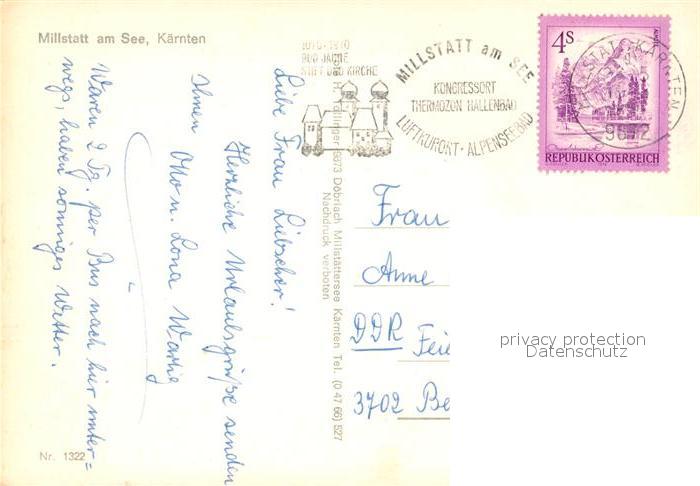 Millstatt am See, Kärnten
1070-1970
900 JAHRE
STIFT UND KIRCHE
MILLSTATT am SEE
KONGRESSORT
THERMOZON HALLENBAD
LUFTKURORT · ALPENSEEBAD
4S
REPUBLIK ÖSTERREICH
MILLSTATT, KÄRNTEN
9872
Liebe Frau Liebscher!
Herzliche Urlaubsgrüße senden
Ihnen
Otto u. Lona
Waren 2 Tg. per Bus nach hier unter=
wegs, haben sonniges Wetter.
9873 Döbriach Millstättersee Kärnten Tel. (0 47 66) 527
Nachdruck verboten
Frau
Anne
DDR Fei
3702 Be
privacy protection
Datenschutz
Nr. 1322